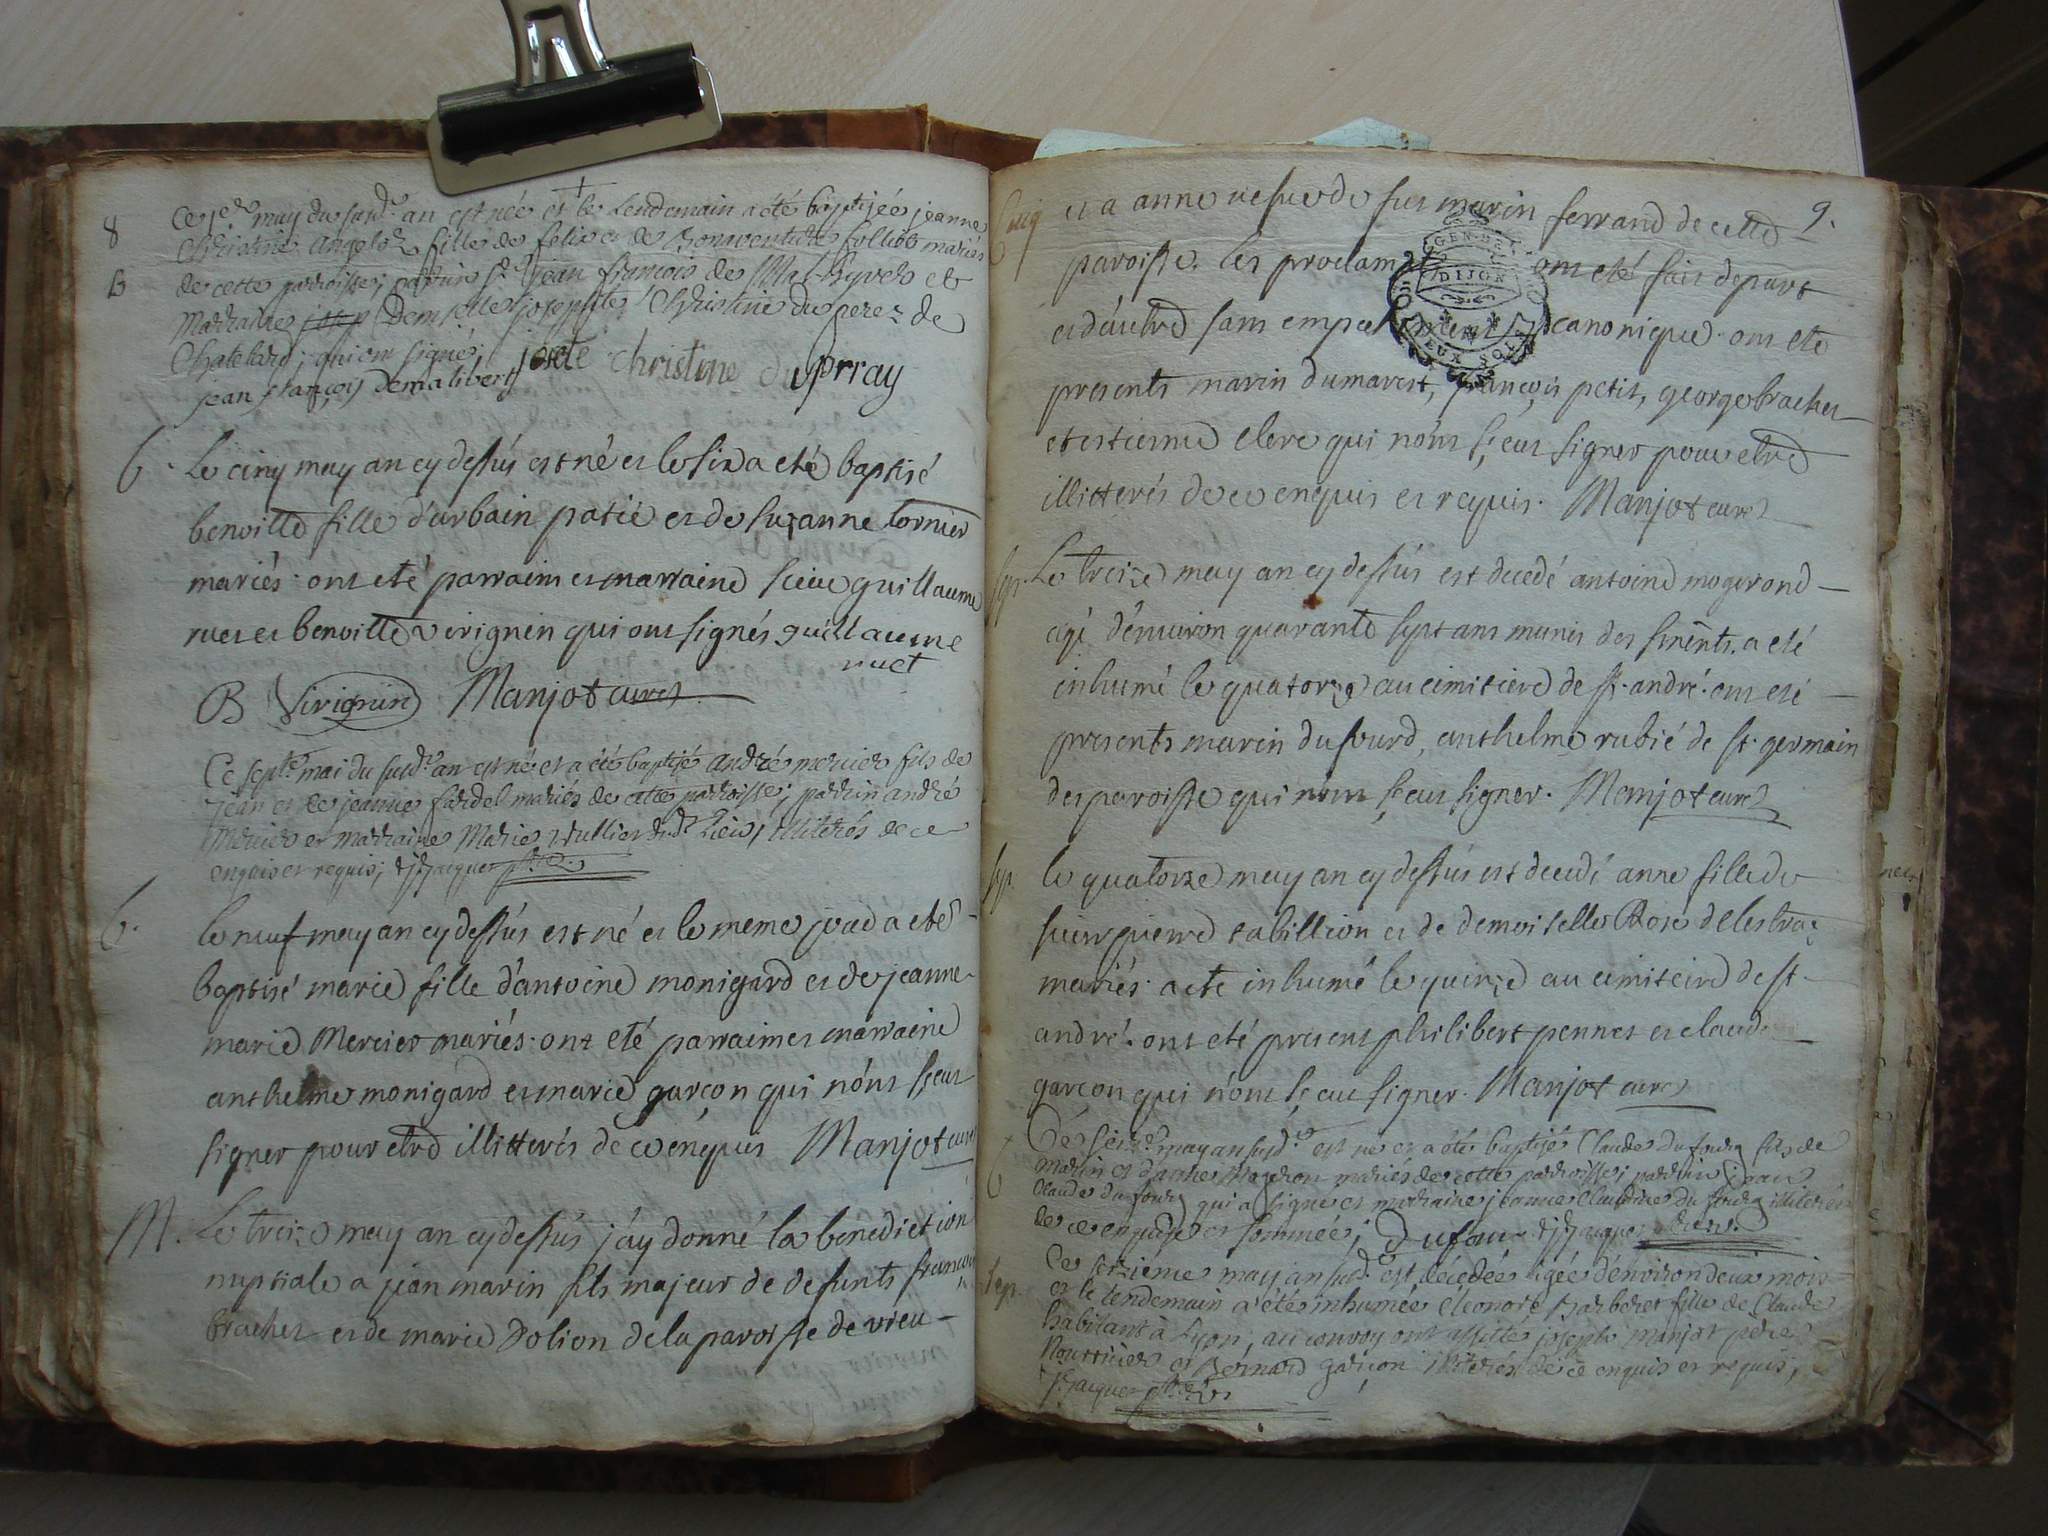 8
ce 1er may du susd. an est née et le lendemain a été baptisée jeanne
Christine fille de felix et de Bonaventure folliet mariés
B
de cette parroisse; parrin sr. jean françois de Malhyvers et
Marraine Demlselle josephte Christine du perez de
Chatelard; qui ont signé;
jean françois demalivert josete christine duprray
b. Le cinq may an cy dessus est né et le six a eté baptisé
benoitte fille d'urbain patié et de suzanne tornier
mariés. ont eté parrain et marraine sieur guillaume
ruet et benoitte virignin qui ont signés guillaume
ruet
B Virignin Manjot curé
Ce sept.e mai du susd. an est né et a été baptisé andré mercier fils de
jean et de jeanne fardel mariés de cette parroisse; parrin andré
Mercier et marraine Marie Vullier dud. lieu, illiterés de ce
enquis et requis; jacquet ptre.
b.
le neuf may an cy dessus est né et le meme jour a eté
baptisé marie fille d'antoine monigard et de jeanne
marie Mercier mariés. ont eté parrain et marraine
anthelme monigard et marie garçon qui n'ont sçeut
signer pour etre illitterés de ce enquis Manjot curé
M. Le treize may an cy dessus j'ay donné la benediction
nuptiale a jean marin fils majeur de defunts francois
brachet et de marie Dolion de la paroisse de vieu
9.
et a anne veſve de fut marin ferrand de cette
paroisse. les proclamat ont eté fait depart
et d'autre sans empechement canonique. ont eté
GEN. DE
DIJON
DEUX SOLS
presents marin dumarest, françois petit, george brachet
et estienne clerc qui n'ont sçeut signer pour etre
illitterés de ce enquis et requis. Manjot curé
sep. Le treize may an cy dessus est decedé antoine mogerond
agé d'environ quarante sept ans munis des srments. a eté
inhumé le quatorze au cimitiere de st. andré. ont eté
presents marin dufourd, anthelme rubié de st. germain
des paroisse qui n'ont sçeut signer. Manjot curé
sep. le quatorze may an cy dessus est decedé anne fille de
sieur pierre tabillion et de demoiselle Rose delestraz
mariés. a eté inhumé le quinze au cimiteire de st.
andré. ont eté present philibert pennet et claude
garçon qui n'ont sçeut signer. Manjot curé
Le seize may an susd. est né et a été baptisé Claude Dufourg fils de
marin et d'anne Mogeron mariés de cette parroisse; parrin jean
Claude dufourg qui a signé et marraine jeanne Claudine du fourg illiterée
de ce enquise et sommée; Dufour jacquet
sep. Ce seizième may an susd. est décédée agée d'environ deux mois
et le lendemain a été inhumée éleonore Barberet fille de Claude
habitant à Lyon; au convoy ont assisté joseph manjot père
Nourricier et Bernard garçon illiterés de ce enquis et requis;
jacquet ptre.